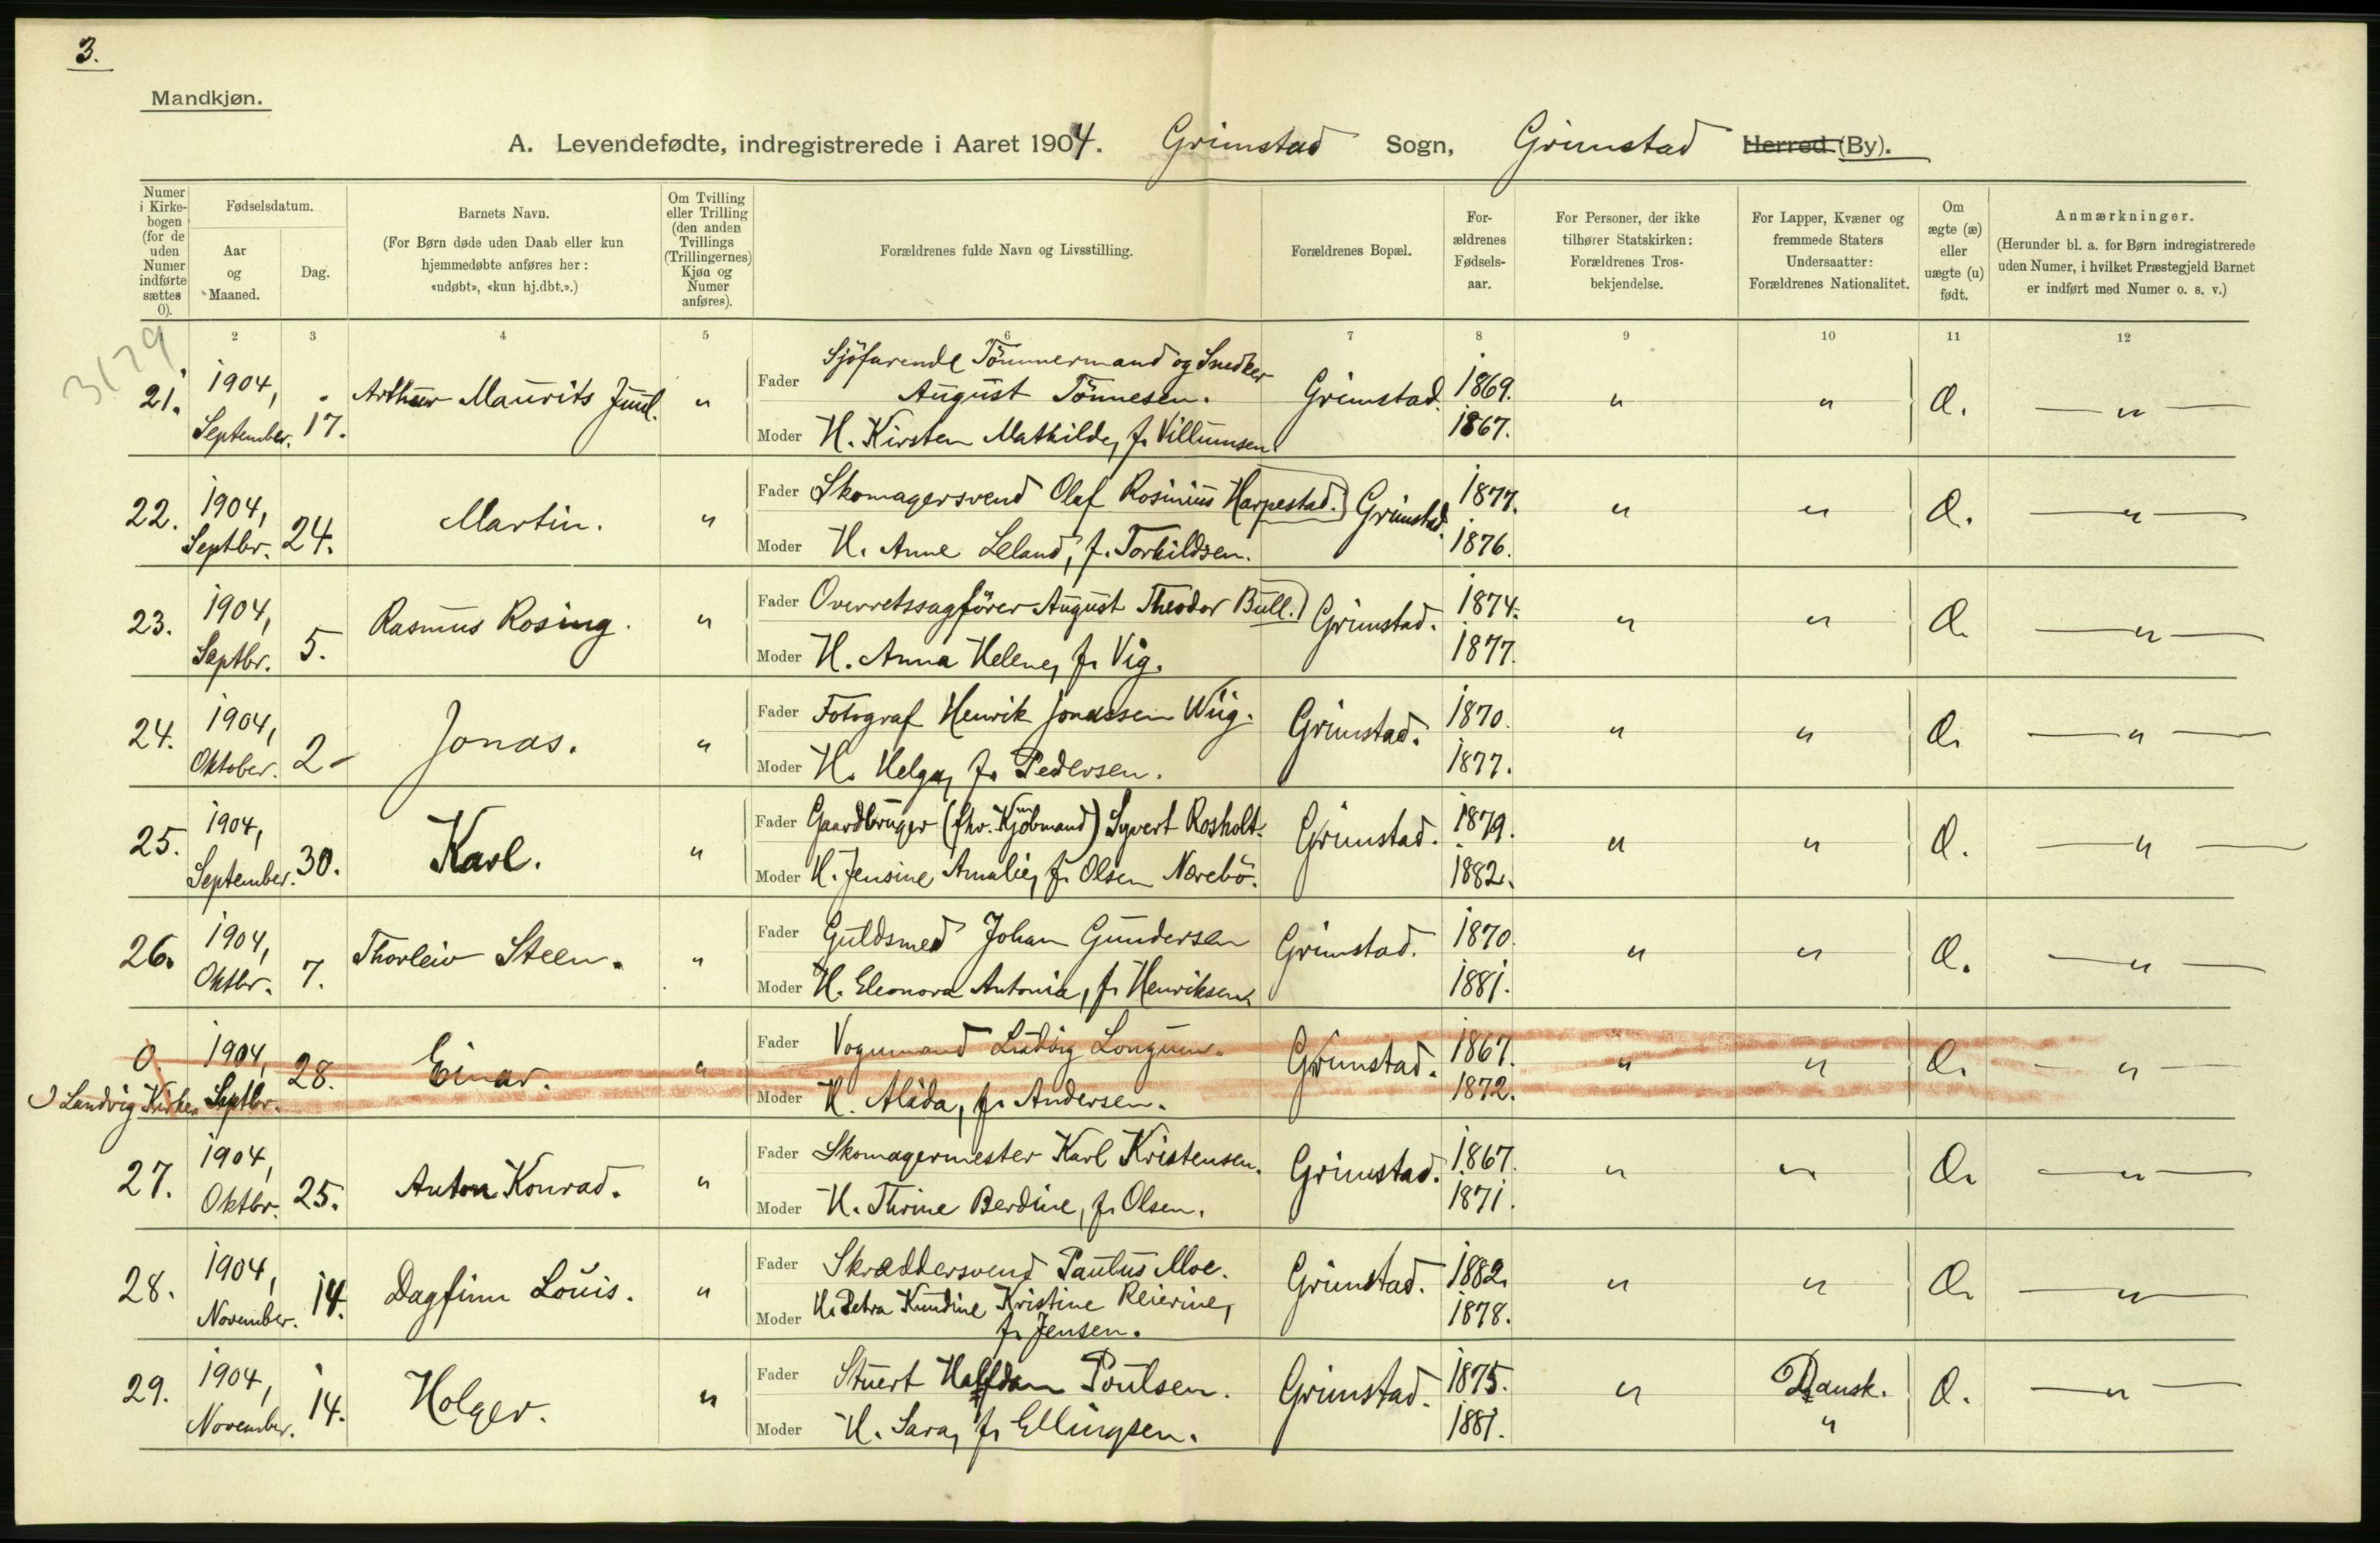 3.
Mandkjøn.
A. Levendefødte, indregistrerede i Aaret 1904. Grimstad Sogn, Grimstad Herred (By).
Numer i Kirke-bogen (for de uden Numer indførte sættes 0).
Fødselsdatum.
Aar og Maaned.
Dag.
Barnets Navn.
(For Børn døde uden Daab eller kun hjemmedøbte anføres her: «udøbt», «kun hj.dbt.».)
Om Tvilling eller Trilling (den anden Tvillings (Trillingernes) Kjøn og Numer anføres).
Forældrenes fulde Navn og Livsstilling.
Forældrenes Bopæl.
For-ældrenes Fødsels-aar.
For Personer, der ikke tilhører Statskirken: Forældrenes Tros-bekjendelse.
For Lapper, Kvæner og fremmede Staters Undersaatter: Forældrenes Nationalitet.
Om ægte (æ) eller uægte (u) født.
Anmærkninger.
(Herunder bl. a. for Børn indregistrerede uden Numer, i hvilket Præstegjeld Barnet er indført med Numer o. s. v.)
2 3 4 5 6 7 8 9 10 11 12
3179
21. 1904, September. 17. Arthur Maurits Juul. " Fader Sjöfarende Tömmermand og Snedker August Tönnesen. Grimstad. 1869. " " Æ. — " —
Moder H. Kirsten Mathilde, f. Villumsen. 1867.
22. 1904, Septbr. 24. Martin. " Fader Skomagersvend Olaf Rosinius Harpestad. Grimstad. 1877. " " Æ. — " —
Moder H. Anne Leland, f. Torkildsen. 1876.
23. 1904, Septbr. 5. Rasmus Rosing. " Fader Overretssagförer August Theodor Bull. Grimstad. 1874. " " Æ. — " —
Moder H. Anna Helene, f. Vig. 1877.
24. 1904, Oktober. 2 Jonas. " Fader Fotograf Henrik Jonassen Wiig. Grimstad. 1870. " " Æ. — " —
Moder H. Helga, f. Pedersen. 1877.
25. 1904, September. 30. Karl. " Fader Gaardbruger (fhv. Kjøbmand) Syvert Rosholt. Grimstad. 1879. " " Æ. — " —
Moder H. Jensine Amalie, f. Olsen Nærebö. 1882.
26. 1904, Oktbr. 7. Thorleiv Steen. " Fader Guldsmed Johan Gundersen Grimstad. 1870. " " Æ. — " —
Moder H. Eleonora Antonia, f. Henriksen. 1881.
0 1904, Septbr. 28. Einar. " Fader Vognmand Ludvig Longum. Grimstad. 1867. " " Æ. — " —
I Landvig Kirke. Moder H. Alida, f. Andersen. 1872.
27. 1904, Oktbr. 25. Anton Konrad. " Fader Skomagermester Karl Kristensen. Grimstad. 1867. " " Æ. — " —
Moder H. Thrine Berdine, f. Olsen. 1871.
28. 1904, November. 14. Dagfinn Louis. " Fader Skræddersvend Paulus Moe. Grimstad. 1882. " " Æ. — " —
Moder H. Petra Kundine Kristine Reierine, f. Jensen. 1878.
29. 1904, November. 14. Holger. " Fader Stuert Halfdan Poulsen. Grimstad. 1875. " Dansk. Æ. — " —
Moder H. Sara, f. Ellingsen. 1881. "